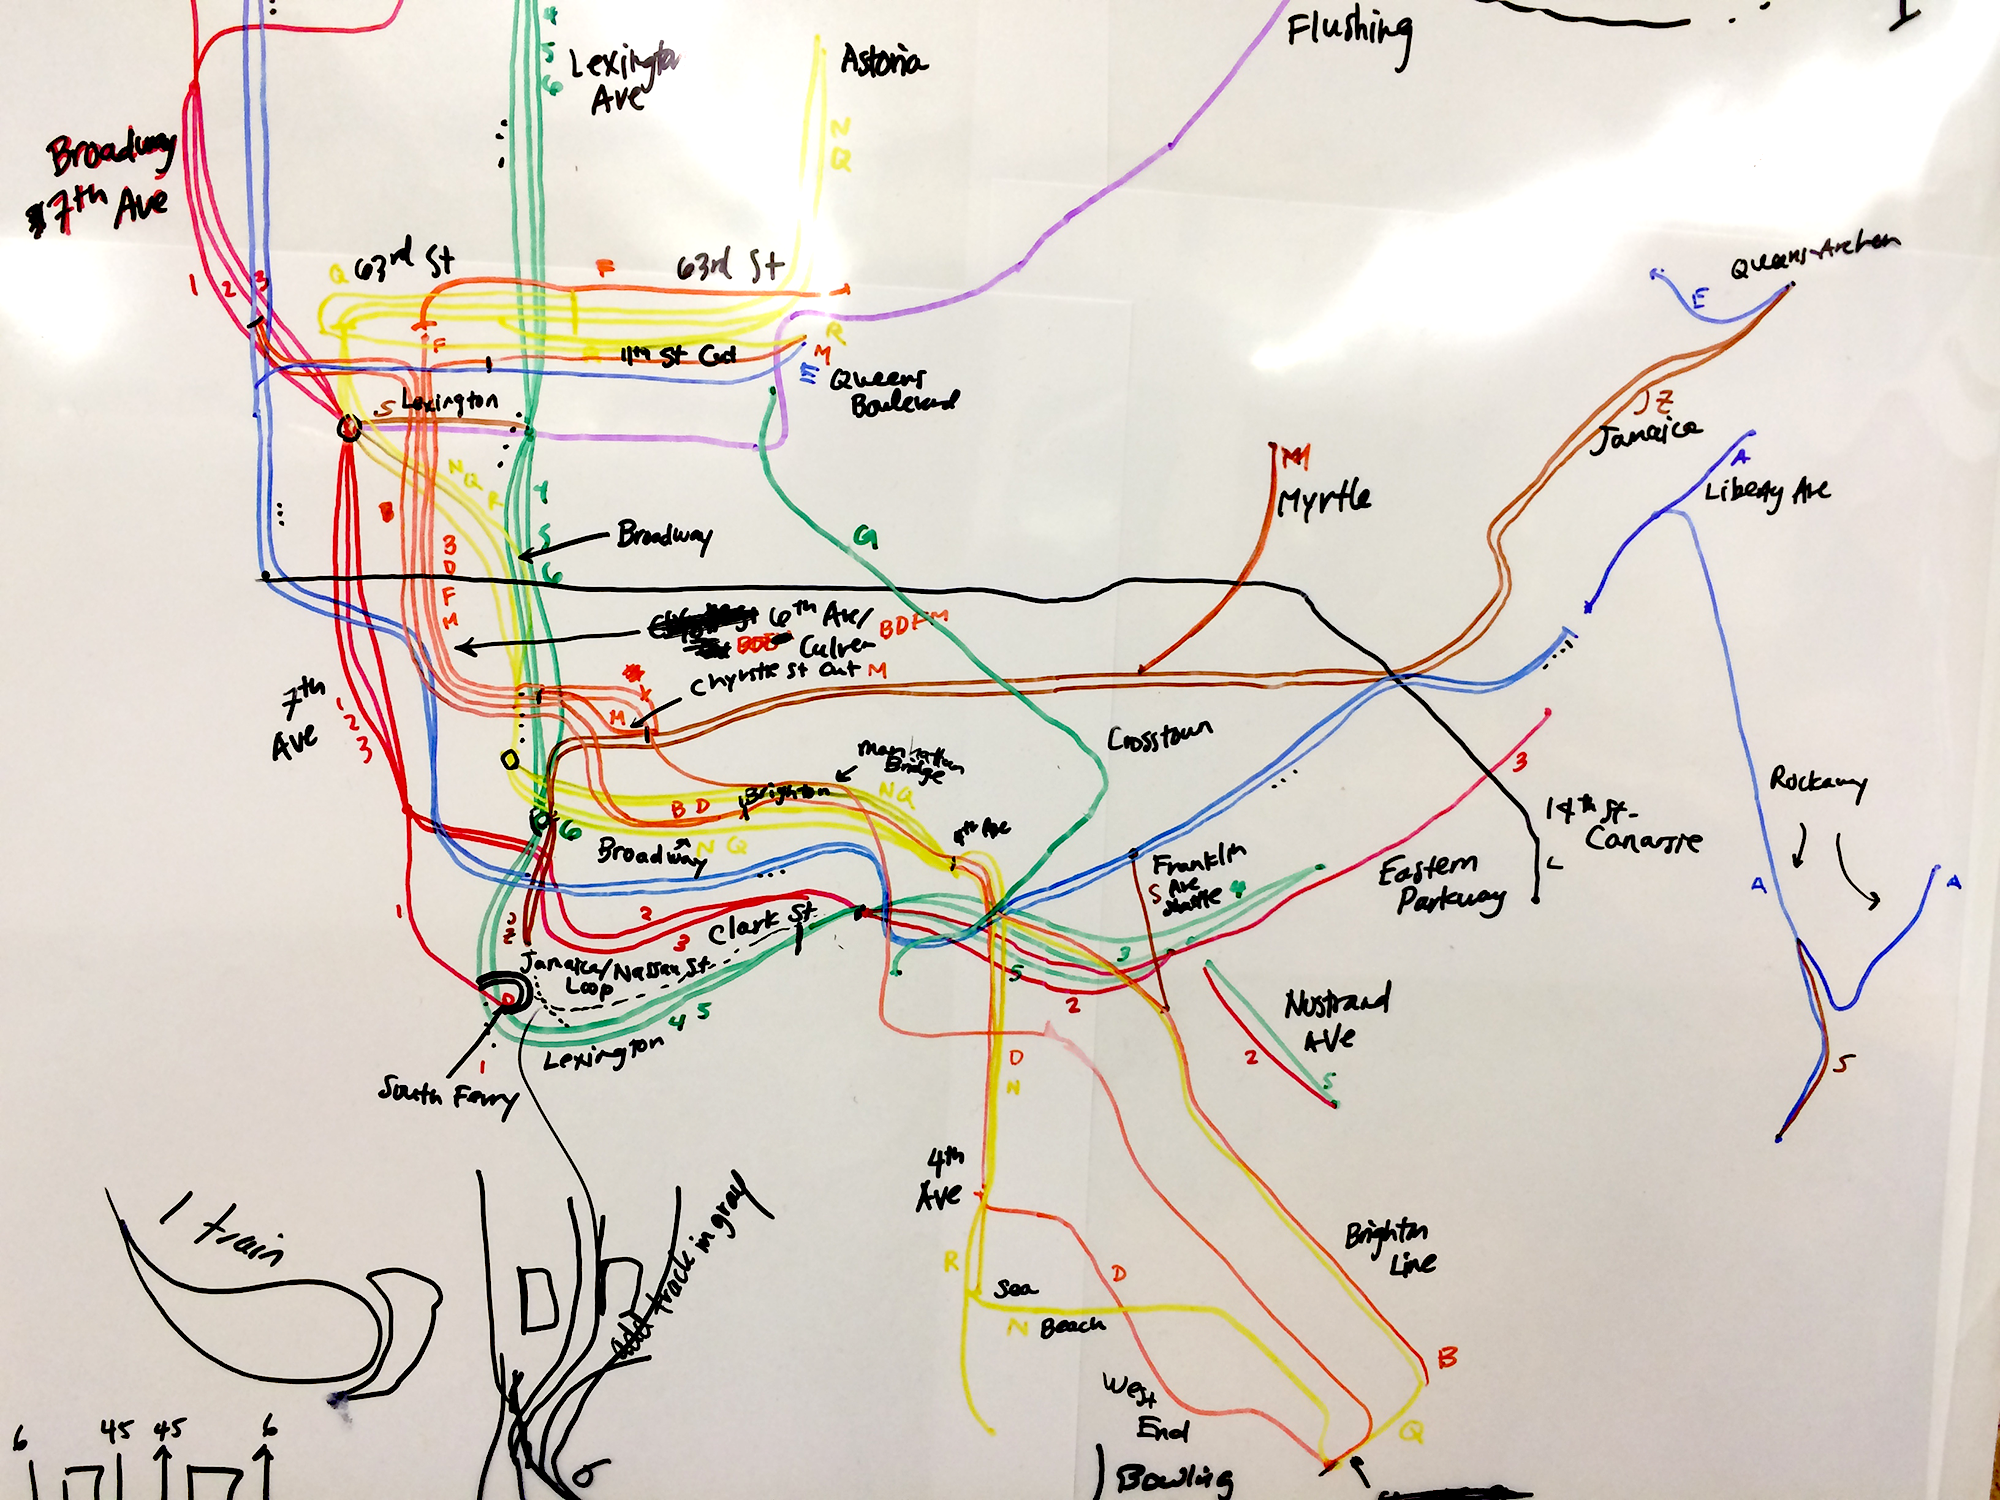 4
5
6
Lexington
Ave
Astoria
Flushing
N
Q
Broadway
7th Ave
1 2 3
Q 63rd St
F
63rd St
F
R
11th St Cut
R
M
E
Queens
Boulevard
S Lexington
N
Q
R
4
5
6
B
Broadway
G
M
Myrtle
E
J Z
Jamaica
A
Liberty Ave
B
D
F
M
6th Ave/
Culver
BDFM
Chrystie St Cut M
M
7th
Ave
1
2
3
Crosstown
Manhattan
Bridge
N Q
B D
Brighton
4th Ave
6
Broadway
N Q
3
14th St-
Canarsie
L
Rockaway
A
A
Franklin
Ave
Shuttle
S
4
Eastern
Parkway
2
3
Clark St
1
J
Z
Jamaica/Nassau St
Loop
3
5
2
4 5
Lexington
South Ferry
1
Nostrand
Ave
2
5
S
D
N
4th
Ave
R
Sea
N Beach
D
Brighton
Line
B
Q
West
End
1 train
add track in gray
6
45
45
6
Bowling